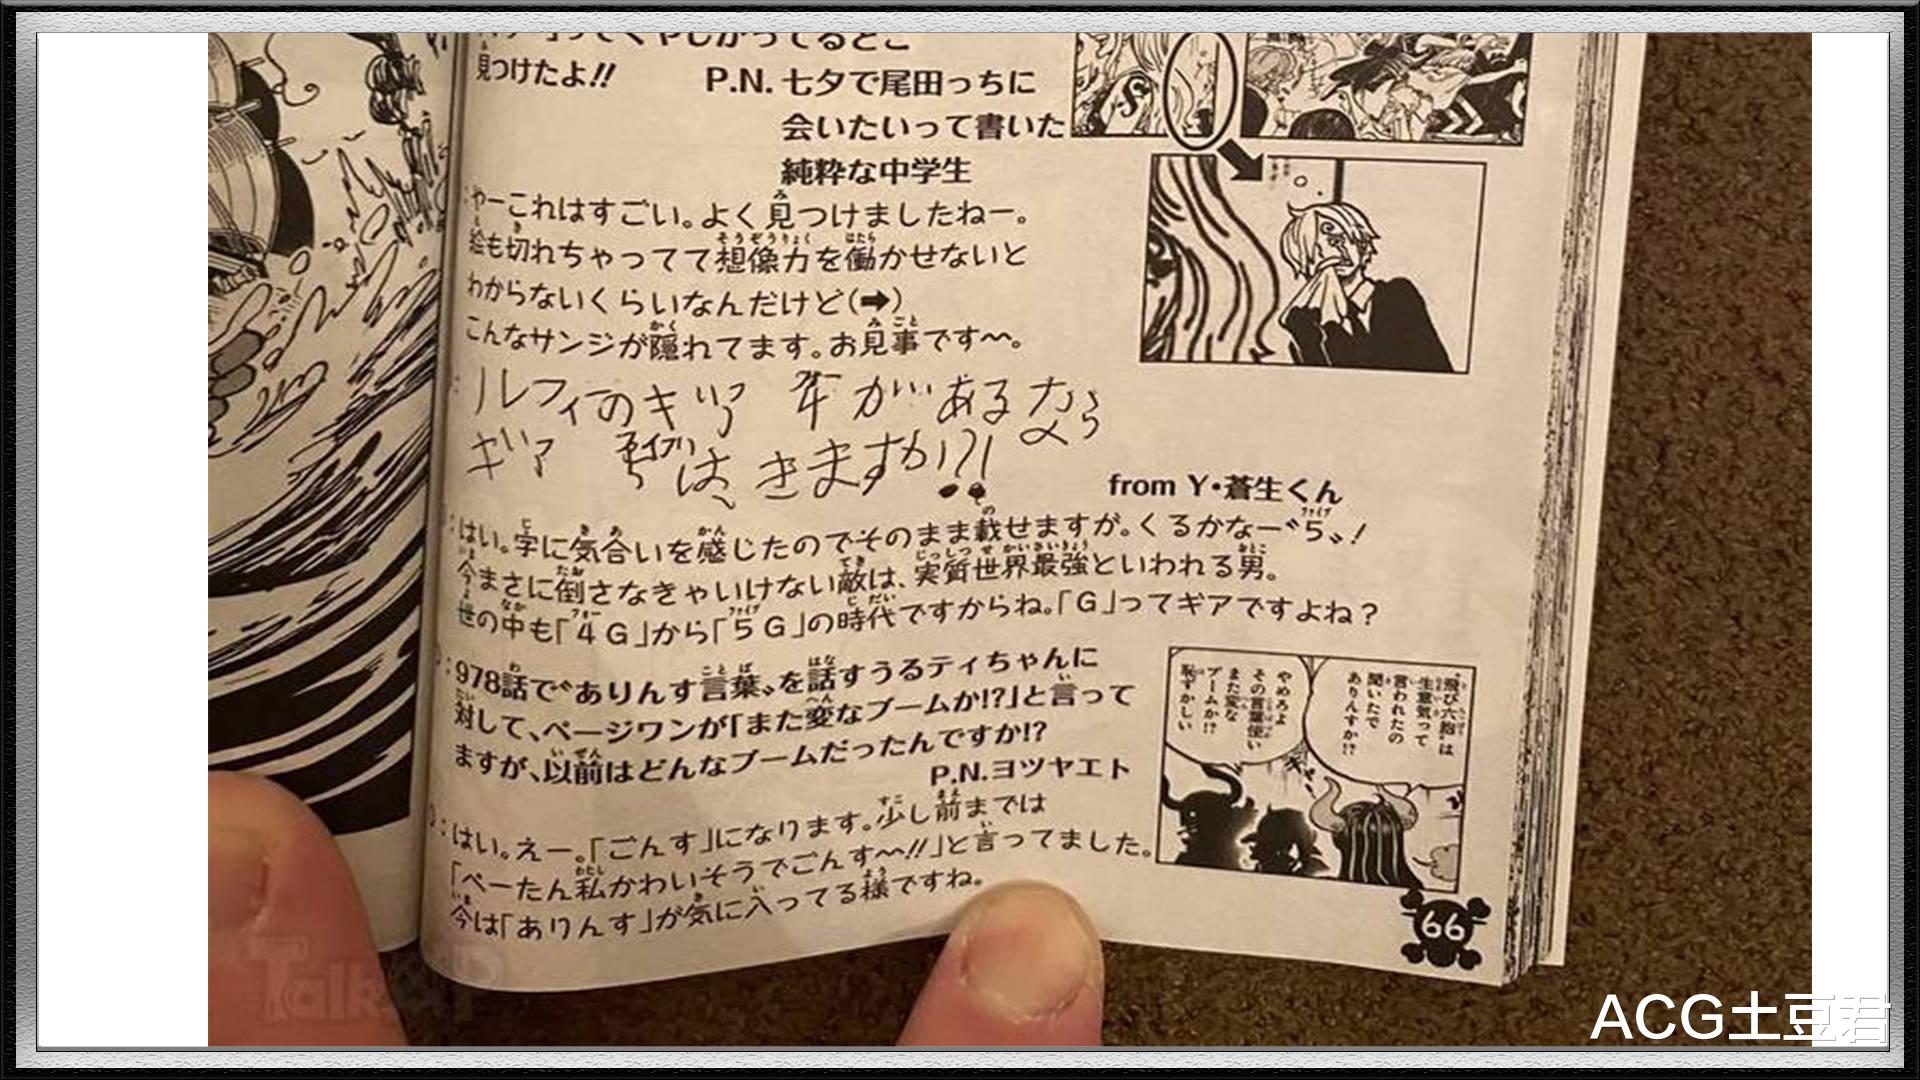 見つけたよ!!
P.N. 七夕で尾田っちに
会いたいって書いた
純粋な中学生
やーこれはすごい。よく見つけましたねー。
絵も切れちゃってて想像力を働かせないと
わからないくらいなんだけど(➡)
こんなサンジが隠れてます。お見事です〜。
ルフィのギア4があるなら
ギア5は、きますか!?!
from Y・蒼生くん
はい。字に気合いを感じたのでそのまま載せますが。くるかなー〝5〟!
今まさに倒さなきゃいけない敵は、実質世界最強といわれる男。
世の中も「4G」から「5G」の時代ですからね。「G」ってギアですよね?
978話で〝ありんす言葉〟を話すうるティちゃんに
対して、ページワンが「また変なブームか!?」と言って
ますが、以前はどんなブームだったんですか!?
P.N.ヨツヤエト
はい。えー。「ごんす」になります。少し前までは
「ペーたん私かわいそうでごんす〜!!」と言ってました。
今は「ありんす」が気に入ってる様ですね。
"飛び六胞"は
生意気って
言われたの
聞いたで
ありんすか!?
やめろよ
その言葉使い
また変な
ブームか!?
恥ずかしい
66
ACG土豆君